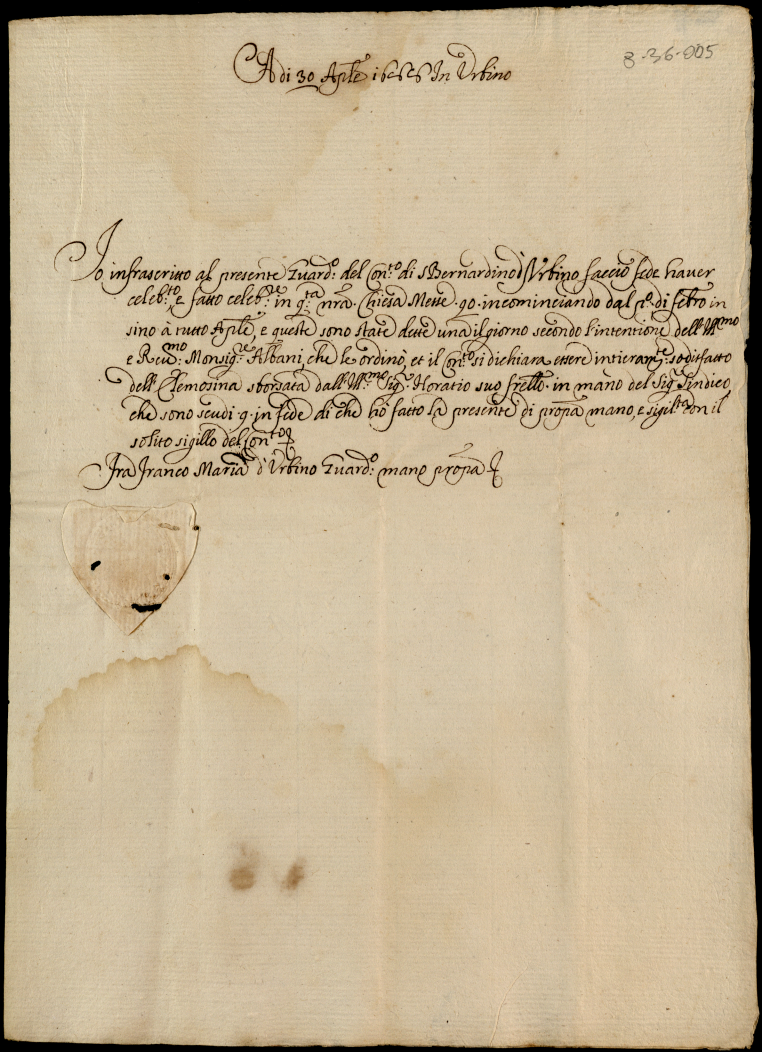 8-36-005
Adi 30 Aprĩle 1666 In Urbino
Io infrascritto al presente Guard:º del Con:to di S Bernardino d'Urbino faccio fede haver
celeb:to e fatto celeb:re in q:ta nr̃a Chiesa Messe .90. incominciando dal p:º di febro in
sino à tutto Aprĩle, e queste sono state dette una il giorno secondo l'intentione dell'Ill:mo
e Reu:mo Monsig:re Albani, che le ordinò, et il Con:to si dichiara essere intieram:te sodisfatto
dell'Elemosina sborsata dall'Ill:mo Sig:r Horatio suo fr̃ello in mano del Sig:r Sindico
che sono scudi 9. in fede di che hò fatto la presente di propr̃a mano, e sigil:ta con il
solito sigillo del Con:to
Fra Franco Maria d'Urbino Guard:º mano propr̃a